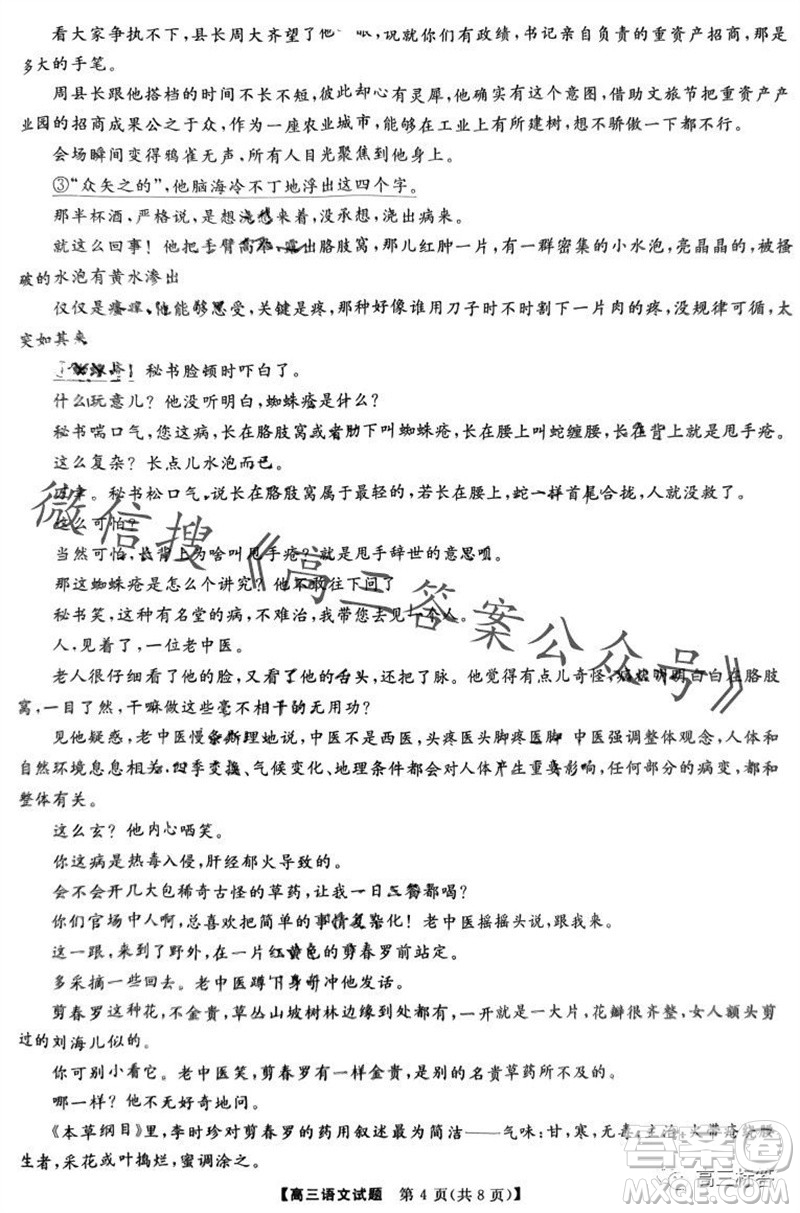 看大家争执不下,县长周大齐望了他一眼,就说你们有政绩,书记亲自负责的重资产招商,那是
多大的手笔。
周县长跟他搭档的时间不长不短,彼此却心有灵犀,他自然有这个意图,借助文旅节把重资产产
业园的招商成果公之于众,作为一座农业城市,在工业上有所建树,想不出彩都不行。
会场瞬间变得鸦雀无声,所有人目光聚焦到他身上。
③“众矢之的”,他脑海冷不丁地浮出这四个字。
那半杯酒,严格说,是想浇愁来着,没承想,浇出病来。
就这么回事!他把手臂高举,露出胳肢窝,那儿红肿一片,有一群密集的小水泡,亮晶晶的,被搔
破的水泡有黄水渗出
仅仅是瘙痒,他能够忍受,关键是疼,那种好像谁用刀子时不时割下一片肉的疼,没规律可循,太
突如其来
蜘蛛疮!秘书脸顿时吓白了。
什么玩意儿?他没听明白,蜘蛛疮是什么?
秘书喘口气,您这病,长在胳肢窝或者脖颈下叫蜘蛛疮,长在腰上叫蛇缠腰,长在背上就是甩手疮。
这么复杂?长点儿水泡而已。
万幸。秘书松口气,说长在胳肢窝属于最轻的,若长在腰上,蛇一样首尾合拢,人就没救了。
这么可怕?
当然可怕,长背上为啥叫甩手疮?甩手辞世的意思呗。
那这蜘蛛疮是怎么个讲究?他不耻下问了
秘书笑,这种有名堂的病,不难治,我带您去见一个人。
人,见了,一位老中医。
老人很仔细看了他的脸,又看了他的舌头,还把了脉。他觉得有点儿奇怪,明明白白在胳肢
窝,一目了然,干嘛做这些毫不相干的无用功?
见他疑惑,老中医慢条斯理地说,中医不是西医,头疼医头脚疼医脚 中医强调整体观念,人体和
自然环境息息相关,四季变换、气候变化、地理条件都会对人体产生重要影响,任何部分的病变,都和
整体有关。
这么玄?他内心哂笑。
你这病是热毒入侵,肝经郁火导致的。
会不会开几大包稀奇古怪的草药,让我一日三餐都喝?
你们官场中人啊,总喜欢把简单的事情复杂化!老中医摇摇头说,跟我来。
这一跟,来到了野外,在一片红黄色的剪春罗前站定。
多采摘一些回去。老中医蹲下身听冲他说。
剪春罗这种花,不金贵,草丛山坡树林边缘到处都有,一开就是一大片,花瓣很齐整,女人额头剪
过的刘海儿似的。
你可别小看它。老中医笑,剪春罗有一样金贵,是别的名贵草药所不及的。
哪一样?他不无好奇地问。
《本草纲目》里,李时珍对剪春罗的药用叙述最为简洁——气味:甘,寒,无毒,主治:火带疮绕腰
生者,采花或叶捣烂,蜜调涂之。
【高三语文试题 第 4 页(共 8 页)】
微信搜《高三答案公众号》
高三标答